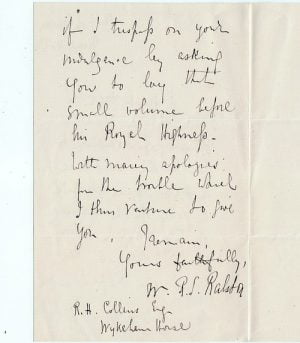 if I trespass on your
indulgence by asking
you to lay this
small volume before
his Royal Highness.
With many apologies
for the trouble which
I thus venture to give
you, I remain,
Yours faithfully,
W. R. S. Ralston
R. H. Collins Esq
Wykeham House